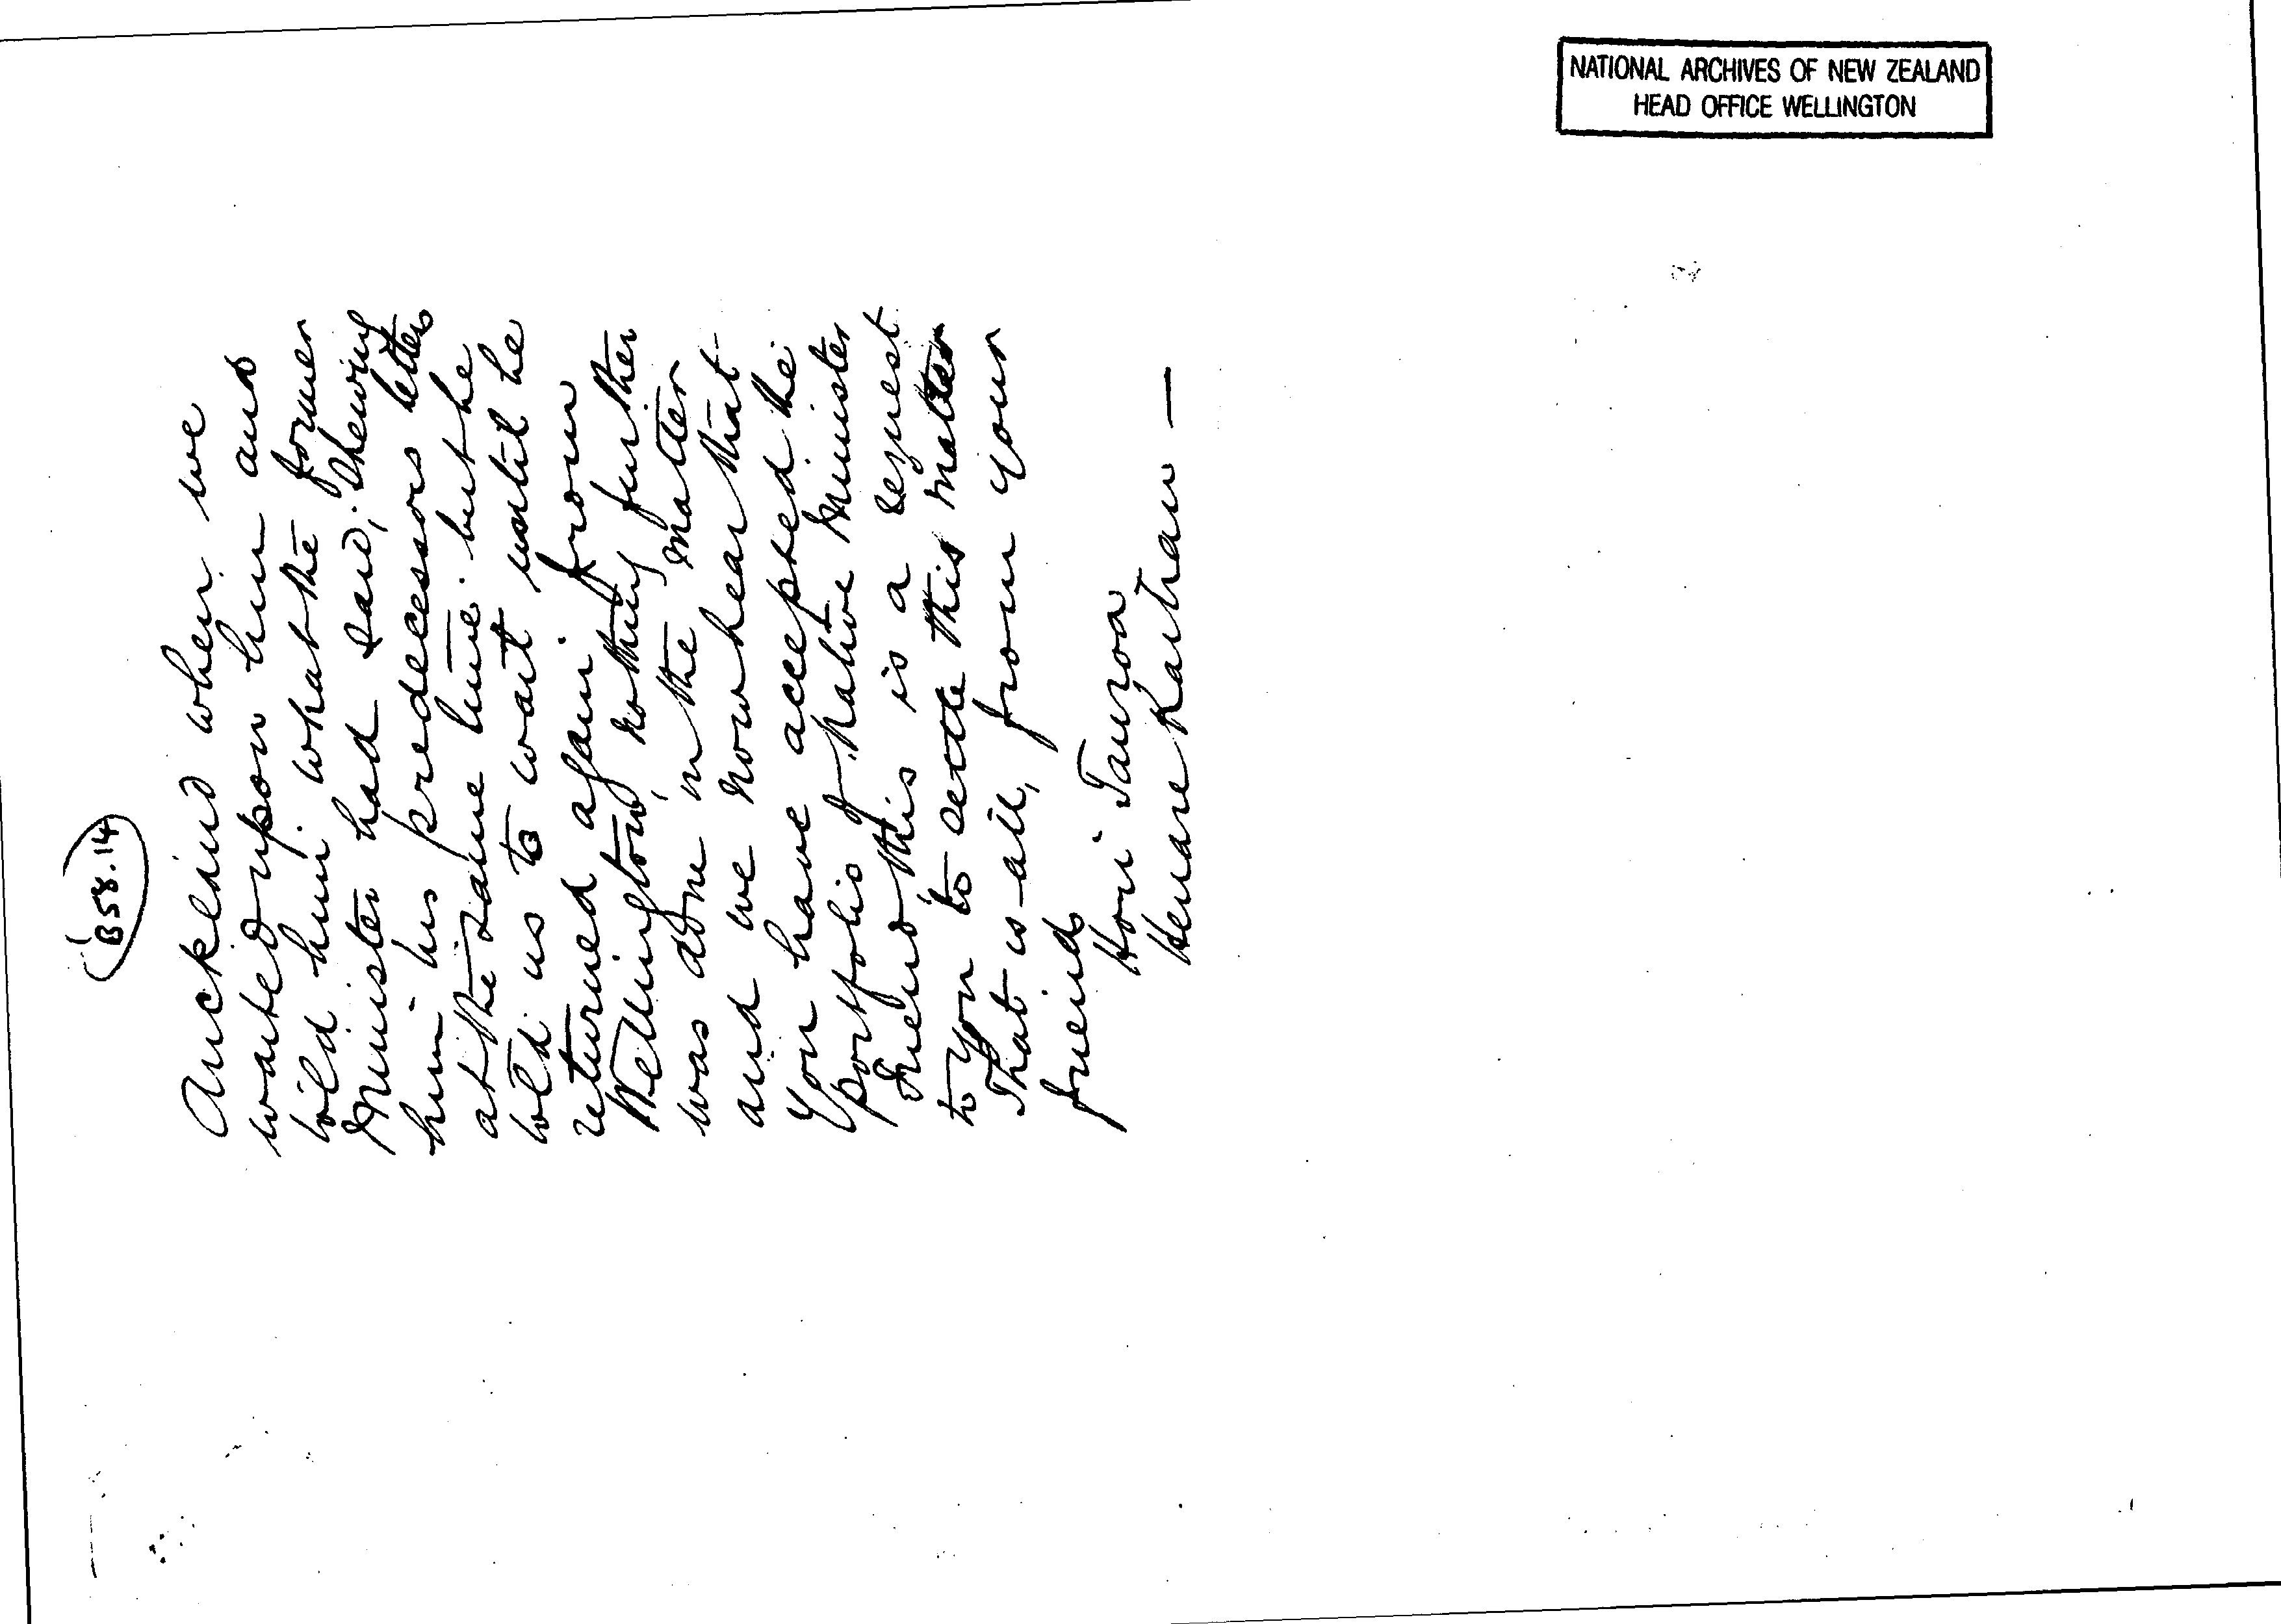 NATIONAL ARCHIVES OF NEW ZEALAND
HEAD OFFICE WELLINGTON
B58.14
Auckland when we
waited upon him and
told him what the former
Minister had said, shewing
him his predecessors letters
at the same time. but he
told us to wait until he
returned again from
Wellington, nothing further
was done in the matter
and we now hear that
You have accepted the
portfolio of Native Minister
Friend this is a request
to you to settle this matter
That is all, from your
friends
Hori Tauroa
Henare Kaihau —